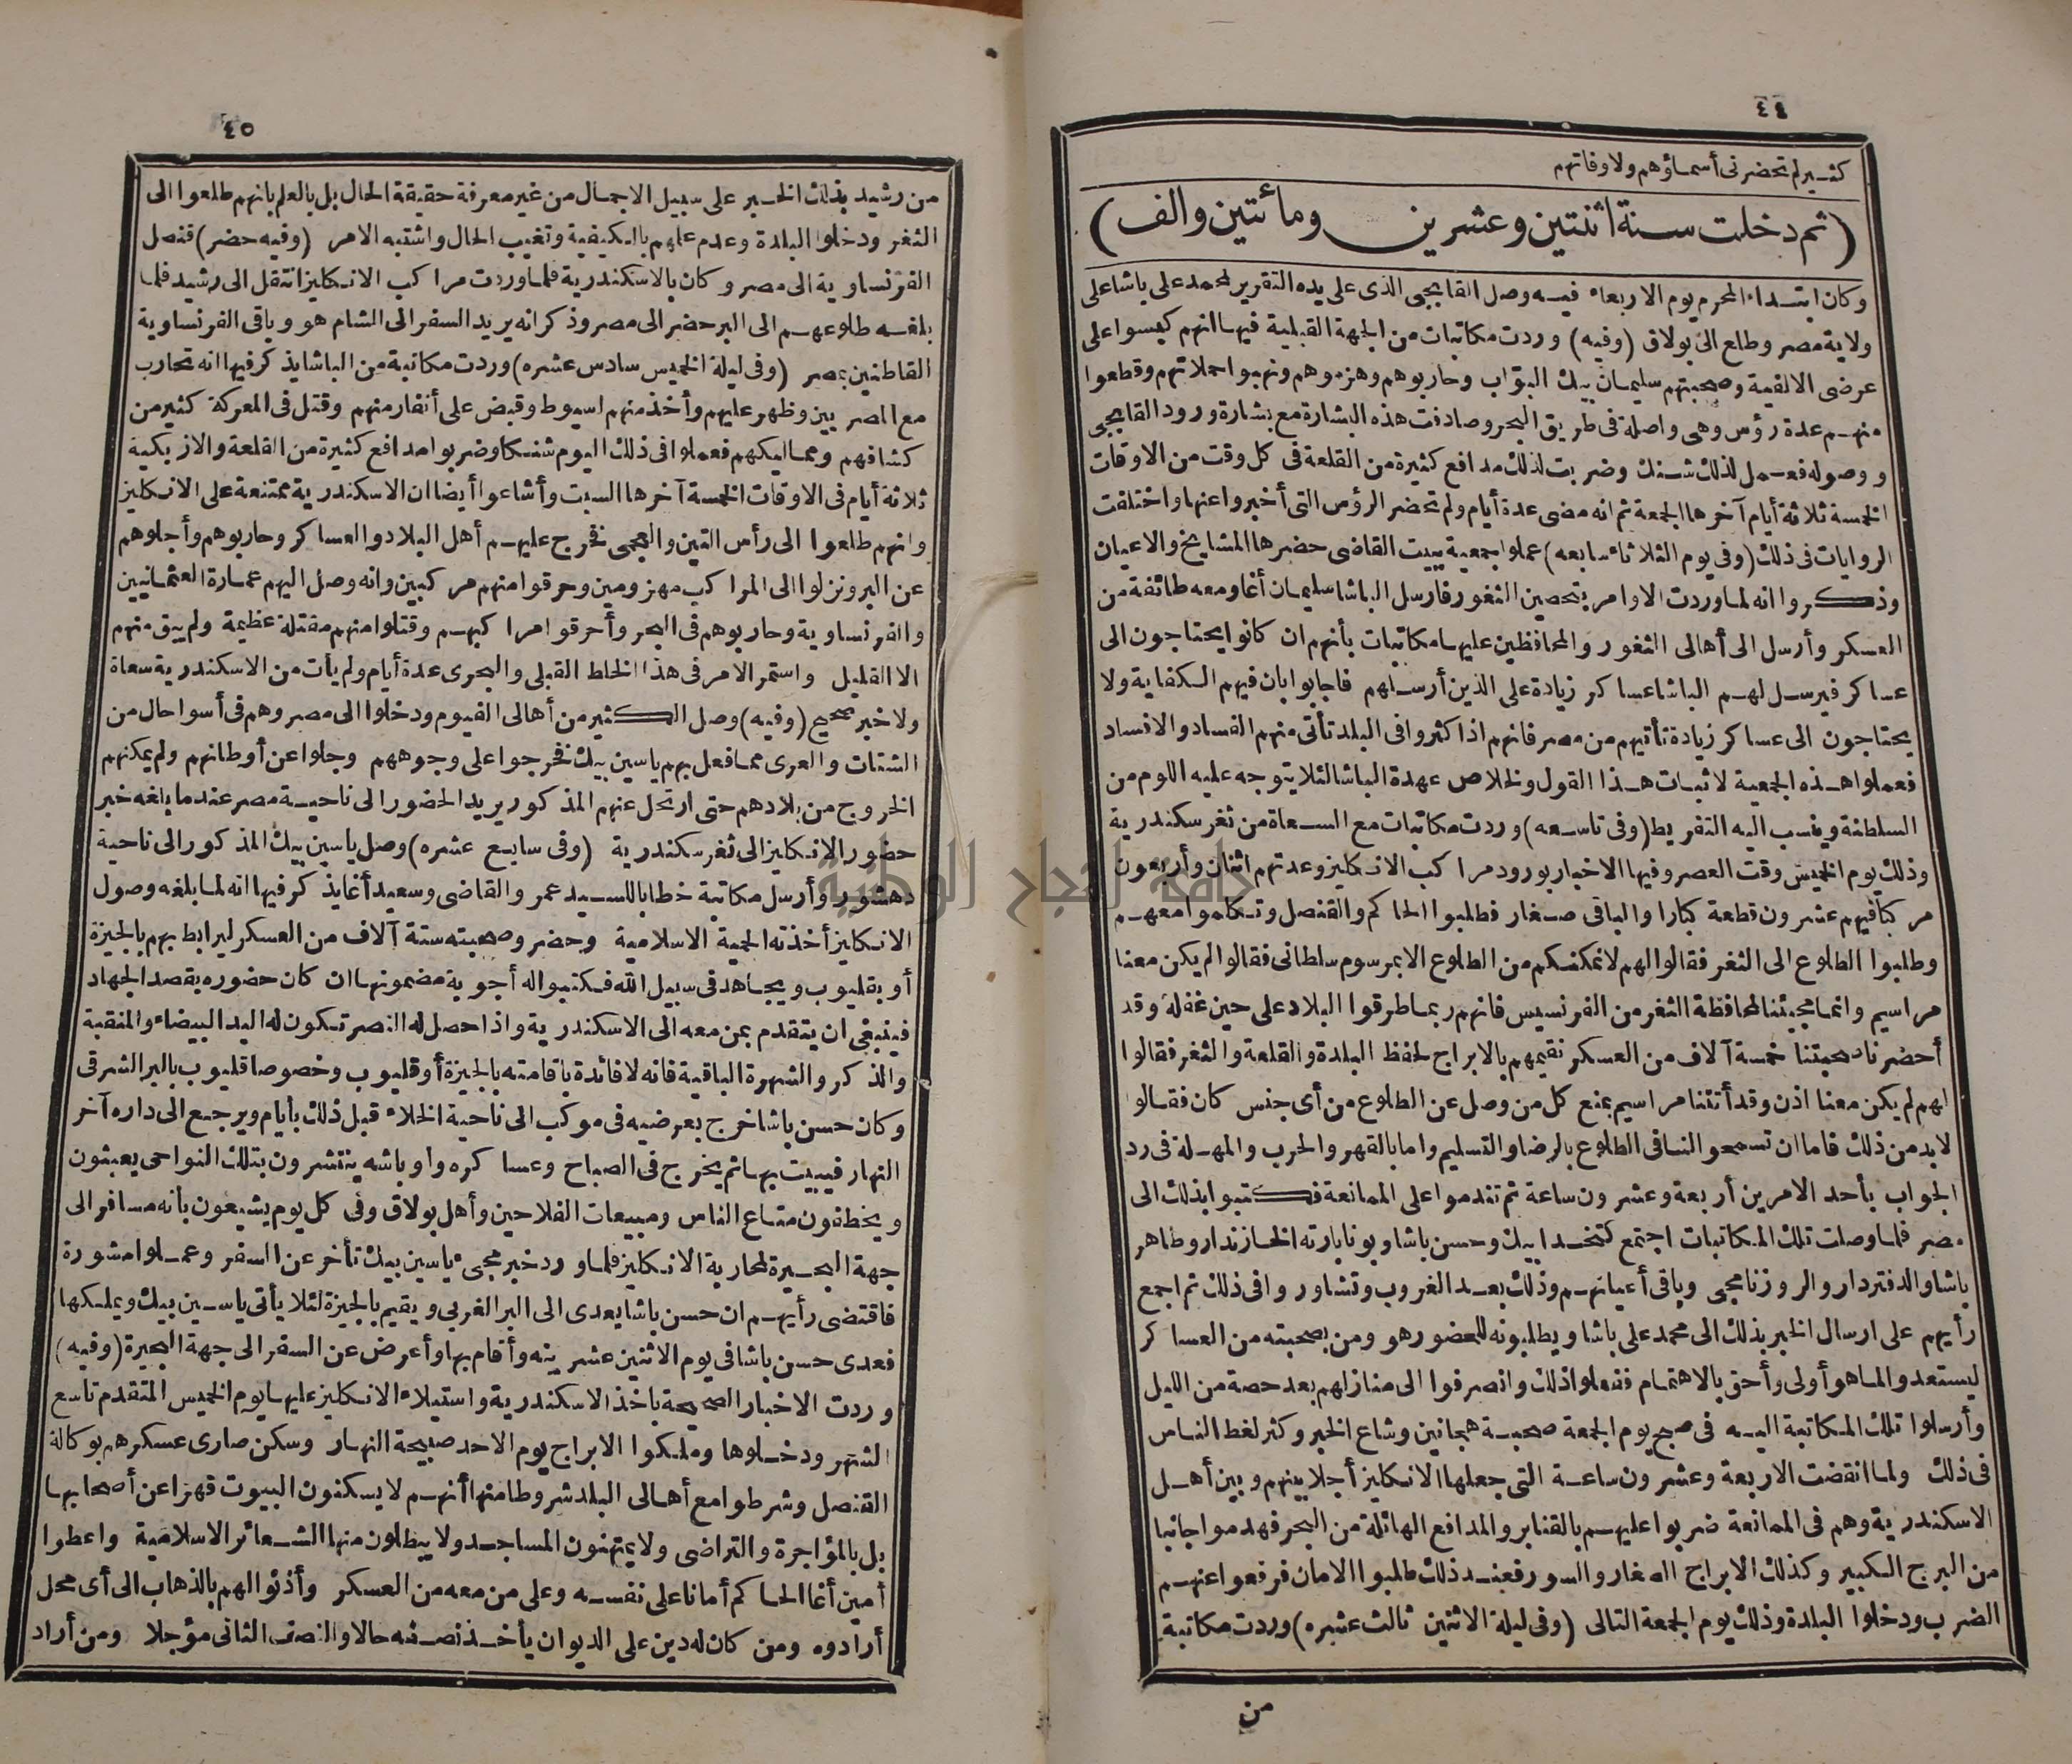 ٤٤
كثير لم تحضرنى أسماؤهم ولا وفاتهم
(ثم دخلت سنة اثنتين وعشرين ومائتين والف)
وكان ابتداء المحرم يوم الاربعاء فيه وصل القابجى الذى على يده التقرير لمحمد على باشا على
ولاية مصر وطلع الى بولاق (وفيه) وردت مكاتبات من الجهة القبلية فيها انهم كبسوا على
عرضى الالفية وصحبتهم سليمان بيك البواب وحاربوهم وهزموهم ونهبوا حملاتهم وقطعوا
منهم عدة رؤس وهى واصلة فى طريق البحر وصادفت هذه البشارة مع بشارة ورود القابجى
ووصوله فعمل لذلك شنك وضربت لذلك مدافع كثيرة من القلعة فى كل وقت من الاوقات
الخمسة ثلاثة أيام آخرها الجمعة ثم انه مضى عدة أيام ولم تحضر الرؤس التى أخبروا عنها واختلفت
الروايات فى ذلك (وفى يوم الثلاثاء سابعه) عملوا جمعية ببيت القاضى حضرها المشايخ والاعيان
وذكروا انه لما وردت الاوامر بتحصين الثغور فارسل الباشا سليمان أغا ومعه طائفة من
العسكر وأرسل الى أهالى الثغور والمحافظين عليها مكاتبات بأنهم ان كانوا يحتاجون الى
عساكر فيرسل لهم الباشا عساكر زيادة على الذين أرسلهم فاجابوا بان فيهم الكفاية ولا
يحتاجون الى عساكر زيادة تأتيهم من مصر فانهم اذا كثروا فى البلد تأتى منهم الفساد والافساد
فعملوا هذه الجمعية لاثبات هذا القول ولخلاص عهدة الباشا لئلا يتوجه عليه اللوم من
السلطنة وينسب اليه التفريط (وفى تاسعه) وردت مكاتبات مع السعاة من ثغر سكندرية
وذلك يوم الخميس وقت العصر وفيها الاخبار بورود مراكب الانكليز وعدتهم اثنان وأربعون
مركبا فيهم عشرون قطعة كبارا والباقى صغار فطلبوا الحاكم والقنصل وتكلموا معهم
وطلبوا الطلوع الى الثغر فقالوا لهم لا نمكنكم من الطلوع الا بمرسوم سلطانى فقالوا لم يكن معنا
مراسيم وانما مجيئنا لمحافظة الثغر من الفرنسيس فانهم ربما طرقوا البلاد على حين غفلة وقد
أحضرنا صحبتنا خمسة آلاف من العسكر نقيمهم بالابراج لحفظ البلدة والقلعة والثغر فقالوا
لهم لم يكن معنا اذن وقد أتتنا مراسيم بمنع كل من وصل عن الطلوع من أى جنس كان فقالوا
لا بد من ذلك فاما ان تسمحوا لنا فى الطلوع بالرضا والتسليم واما بالقهر والحرب والمهلة فى رد
الجواب بأحد الامرين أربعة وعشرون ساعة ثم تندموا على الممانعة فكتبوا بذلك الى
مصر فلما وصلت تلك المكاتبات اجتمع كتخدا بيك وحسن باشا وبونابارته الخازندار وطاهر
باشا والدفتردار والروزنامجى وباقى أعيانهم وذلك بعد الغروب وتشاوروا فى ذلك ثم اجمع
رأيهم على ارسال الخبر بذلك الى محمد على باشا ويطلبونه للحضور هو ومن بصحبته من العساكر
ليستعدوا لما هو أولى وأحق بالاهتمام ففعلوا ذلك وانصرفوا الى منازلهم بعد حصة من الليل
وأرسلوا تلك المكاتبة اليه فى صبح يوم الجمعة صحبة هجانين وشاع الخبر وكثر لغط الناس
فى ذلك ولما انقضت الاربعة وعشرون ساعة التى جعلها الانكليز أجلا بينهم وبين أهل
الاسكندرية وهم فى الممانعة ضربوا عليهم بالقنابر والمدافع الهائلة من البحر فهدموا جانبا
من البرج الكبير وكذلك الابراج الصغار والسور فعند ذلك طلبوا الامان فرفعوا عنهم
الضرب ودخلوا البلدة وذلك يوم الجمعة التالى (وفى ليلة الاثنين ثالث عشره) وردت مكاتبة
من
٤٥
من رشيد بذلك الخبر على سبيل الاجمال من غير معرفة حقيقة الحال بل بالعلم بانهم طلعوا الى
الثغر ودخلوا البلدة وعدم علمهم بالكيفية وتغيب الحال واشتبه الامر (وفيه حضر) قنصل
الفرنساوية الى مصر وكان بالاسكندرية فلما وردت مراكب الانكليز انتقل الى رشيد فلما
بلغه طلوعهم الى البر حضر الى مصر وذكر انه يريد السفر الى الشام هو وباقى الفرنساوية
القاطنين بمصر (وفى ليلة الخميس سادس عشره) وردت مكاتبة من الباشا يذكر فيها انه تحارب
مع المصريين وظهر عليهم وأخذ منهم اسيوط وقبض على أنفار منهم وقتل فى المعركة كثير من
كشافهم ومماليكهم فعملوا فى ذلك اليوم شنكا وضربوا مدافع كثيرة من القلعة والازبكية
ثلاثة أيام فى الاوقات الخمسة آخرها السبت وأشاعوا أيضا ان الاسكندرية ممتنعة على الانكليز
وانهم طلعوا الى رأس التين والعجمى فخرج عليهم أهل البلاد والعساكر وحاربوهم وأجلوهم
عن البر ونزلوا الى المراكب مهزومين وحرقوا منهم مركبين وانه وصل اليهم عمارة العثمانيين
والفرنساوية وحاربوهم فى البحر وأحرقوا مراكبهم وقتلوا منهم مقتلة عظيمة ولم يبق منهم
الا القليل واستمر الامر فى هذا الخلط القبلى والبحرى عدة أيام ولم يأت من الاسكندرية سعاة
ولا خبر صحيح (وفيه) وصل الكثير من أهالى الفيوم ودخلوا الى مصر وهم فى أسوا حال من
الشتات والعرى مما فعل بهم ياسين بيك فخرجوا على وجوههم وجلوا عن أوطانهم ولم يمكنهم
الخروج من بلادهم حتى ارتحل عنهم المذكور يريد الحضور الى ناحية مصر عندما بلغه خبر
حضور الانكليز الى ثغر سكندرية (وفى سابع عشره) وصل ياسين بيك المذكور الى ناحية
دهشور وأرسل مكاتبة خطابا للسيد عمر والقاضى وسعيد أغا يذكر فيها انه لما بلغه وصول
الانكليز أخذته الحمية الاسلامية وحضر وصحبته ستة آلاف من العسكر ليرابط بهم بالجيزة
أو بقليوب ويجاهد فى سبيل الله فكتبوا له أجوبة مضمونها ان كان حضوره بقصد الجهاد
فينبغى ان يتقدم بمن معه الى الاسكندرية واذا حصل له النصر تكون له اليد البيضاء والمنقبة
والذكر والشهرة الباقية فانه لا فائدة باقامته بالجيزة أو قليوب وخصوصا قليوب بالبر الشرقى
وكان حسن باشا خرج بعرضيه فى موكب الى ناحية الخلاء قبل ذلك بأيام ويرجع الى داره آخر
النهار فيبيت بها ثم يخرج فى الصباح وعساكره وأوباشه ينتشرون بتلك النواحى يعبثون
ويخطفون متاع الناس ومبيعات الفلاحين وأهل بولاق وفى كل يوم يشيعون بأنه مسافر الى
جهة البحيرة لمحاربة الانكليز فلما ورد خبر مجىء ياسين بيك تأخر عن السفر وعملوا مشورة
فاقتضى رأيهم ان حسن باشا يعدى الى البر الغربى ويقيم بالجيزة لئلا يأتى ياسين بيك ويملكها
فعدى حسن باشا فى يوم الاثنين عشرينه وأقام بها وأعرض عن السفر الى جهة البحيرة (وفيه)
وردت الاخبار الصحيحة باخذ الاسكندرية واستيلاء الانكليز عليها يوم الخميس المتقدم تاسع
الشهر ودخلوها وملكوا الابراج يوم الاحد صبيحة النهار وسكن صارى عسكرهم بوكالة
القنصل وشرطوا مع أهالى البلد شروطا منها أنهم لا يسكنون البيوت قهرا عن أصحابها
بل بالمؤاجرة والتراضى ولا يمتهنون المساجد ولا يبطلون منها الشعائر الاسلامية واعطوا
أمين أغا الحاكم أمانا على نفسه وعلى من معه من العسكر وأذنوا لهم بالذهاب الى أى محل
أرادوه ومن كان له دين على الديوان يأخذ نصفه حالا والنصف الثانى مؤجلا ومن أراد
جامعة النجاح الوطنية